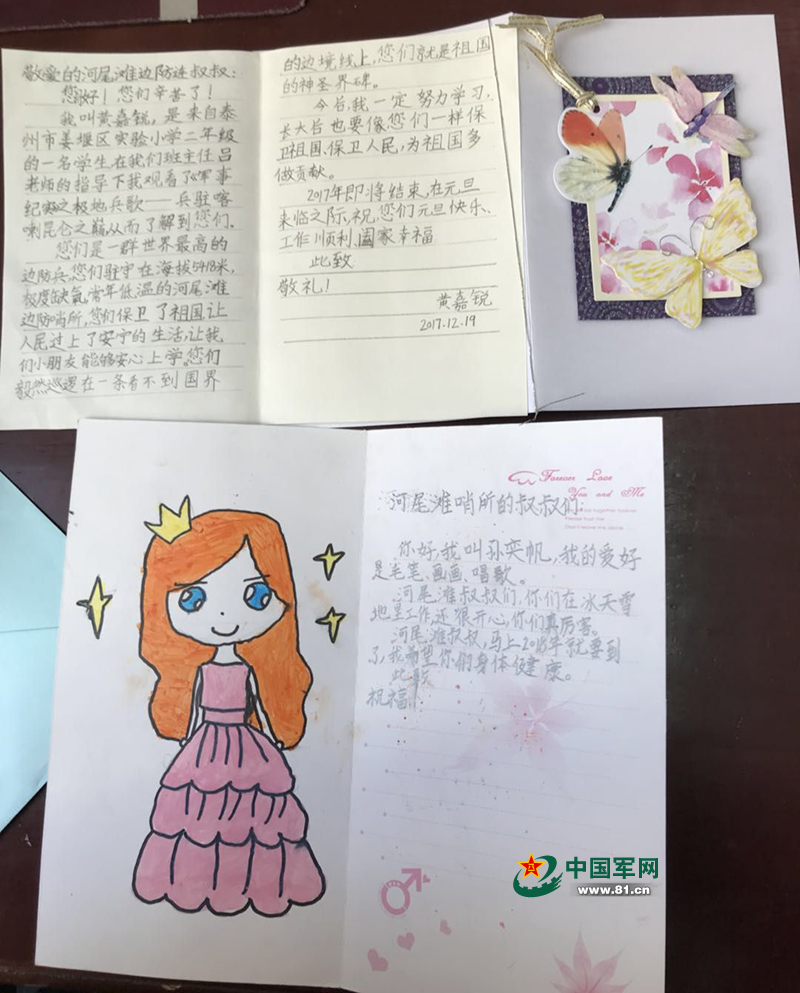 敬爱的河尾滩边防连叔叔:
您好!您们辛苦了!
我叫黄嘉锐,是来自泰
州市姜堰区实验小学二年级
的一名学生在我们班主任吕
老师的指导下我观看了军事
纪实之极地兵歌——兵驻喀
喇昆仑之巅从而了解到您们.
您们是一群世界最高的
边防兵,您们驻守在海拔5418米,
极度缺氧常年低温的河尾滩
边防哨所,您们保卫了祖国让
人民过上了安宁的生活,让我
们小朋友能够安心上学.您们
毅然巡逻在一条看不到国界
的边境线上,您们就是祖国
的神圣界碑。
今后,我一定努力学习.
长大后也要像您们一样保
卫祖国、保卫人民,为祖国多
做贡献。
2017年即将结束,在元旦
来临之际,祝您们元旦快乐、
工作顺利、阖家幸福
此致
敬礼!
黄嘉锐
2017.12.19
Forever Love
You and Me
河尾滩哨所的叔叔们:
你好,我叫孙奕帆,我的爱好
是毛笔、画画、唱歌。
河尾滩叔叔们,你们在冰天雪
地里工作,还很开心,你们真厉害。
河尾滩叔叔,马上2018年就要到
了,我希望你们身体健康。
此致
祝福!
中国军网
www.81.cn